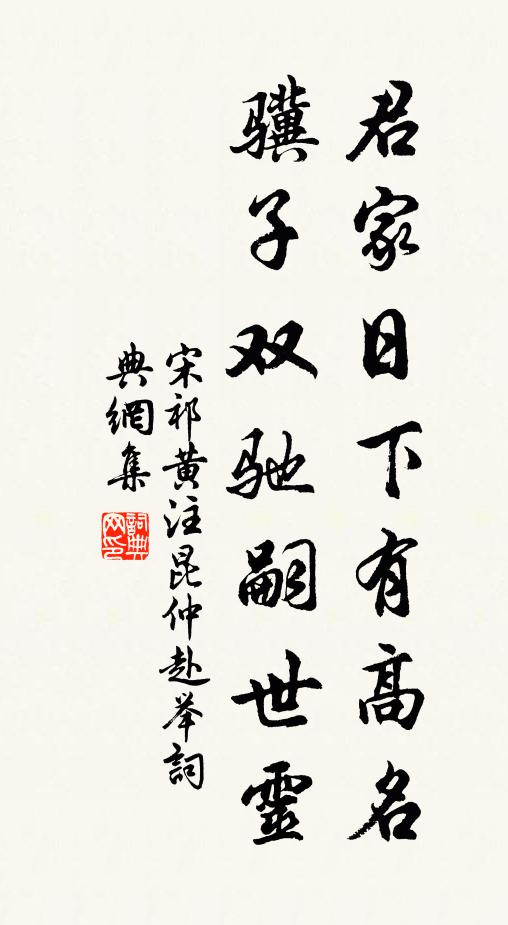 君家日下有高名
骥子双驰嗣世靈
宋祁黄注昆仲赴举詞
典網集
詞典网印